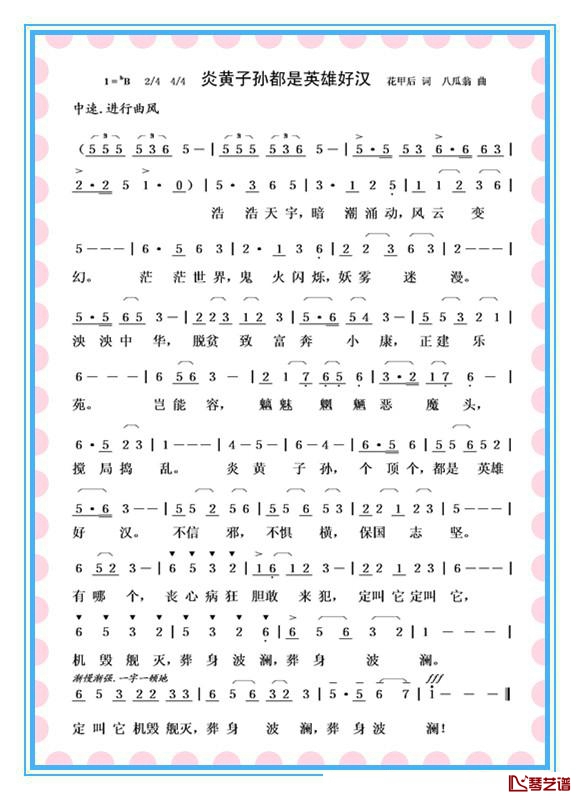 1=♭B 2/4 4/4 炎黄子孙都是英雄好汉 花甲后 词 八瓜翁 曲
中速.进行曲风
(555 536 5-|555 536 5-|5·5 53 6·6 63|
2·2 5 1·0)|5·3 6 5|3·1 2 5|1 1 2 3 6|
浩 浩天宇,暗 潮涌动,风云 变
5---|6·5 6 3|2·1 3 6|2 2 3 6 3|2---|
幻。 茫 茫世界,鬼 火闪烁,妖雾 迷 漫。
5·5 65 3-|223 12 3-|5·6 54 3|55 321|
泱 泱中 华, 脱贫 致 富奔 小 康, 正建 乐
6---|6 56 3-|2 1 7 65|3·2 17 6-|
苑。 岂能 容, 魑 魅 魍 魉恶 魔 头,
6·5 23|1---|4-5-|6-4-|6·5 5|55 652|
搅 局捣 乱。 炎 黄 子 孙, 个 顶个,都是 英雄
5·6 3--|55 2 56|55 6 54 3|22 1 23|5---|
好 汉。 不信 邪,不惧 横, 保国 志 坚。
6 52 3-|6 5 3 2|16 12 3-|22 3 22 3|
有哪 个, 丧心病狂 胆敢 来犯, 定叫它定叫它,
6 5 3 2|5 3 2 6|6 5 6 5 6|3---|
机 毁 舰 灭,葬 身 波 澜,葬 身 波 澜。
渐慢渐强.一字一顿地 fff
6 5 3 22 33|6 5 3 2|3·5 5 6 7|1--‖
定 叫 它 机毁 舰灭,葬 身 波 澜,葬身 波 澜!
琴艺谱